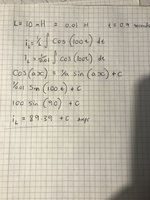 L = 10 mH = 0.01 H t = 0.9 seconds
i_L = 1/L ∫ Cos (100t) dt
i_L = 1/0.01 ∫ cos (100t) dt
Cos (ax) = 1/a Sin (ax) + C
1/0.01 Sin (100t) + C
100 Sin (90) + C
i_L = 89.39 + C amps